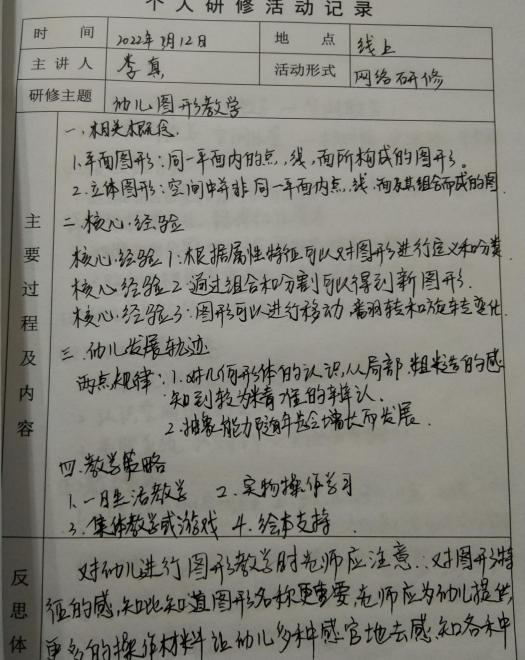 个人研修活动记录
时间 2022年3月12日 地点 线上
主讲人 李真 活动形式 网络研修
研修主题 幼儿图形教学
主要过程及内容
一、相关概念.
1.平面图形:同一平面内的点,线,面所构成的图形。
2.立体图形:空间中并非同一平面内点,线,面及其组合而成的图
二.核心经验
核心经验1:根据属性特征可以对图形进行定义和分类
核心经验2:通过组合和分割可以得到新图形.
核心经验3:图形可以进行移动,翻转和旋转变化.
三.幼儿发展轨迹
两点规律:1.对几何形体的认识,从局部,粗糙的感
知到较为精准的辨认.
2.抽象能力随年龄增长而发展.
四.教学策略
1.一日生活教学 2.实物操作学习
3.集体教学或游戏 4.绘本支持.
反思体
对幼儿进行图形教学时老师应注意:对图形特
征的感知比知道图形名称更重要,老师应为幼儿提供
更多的操作材料让幼儿多种感官地去感知各种